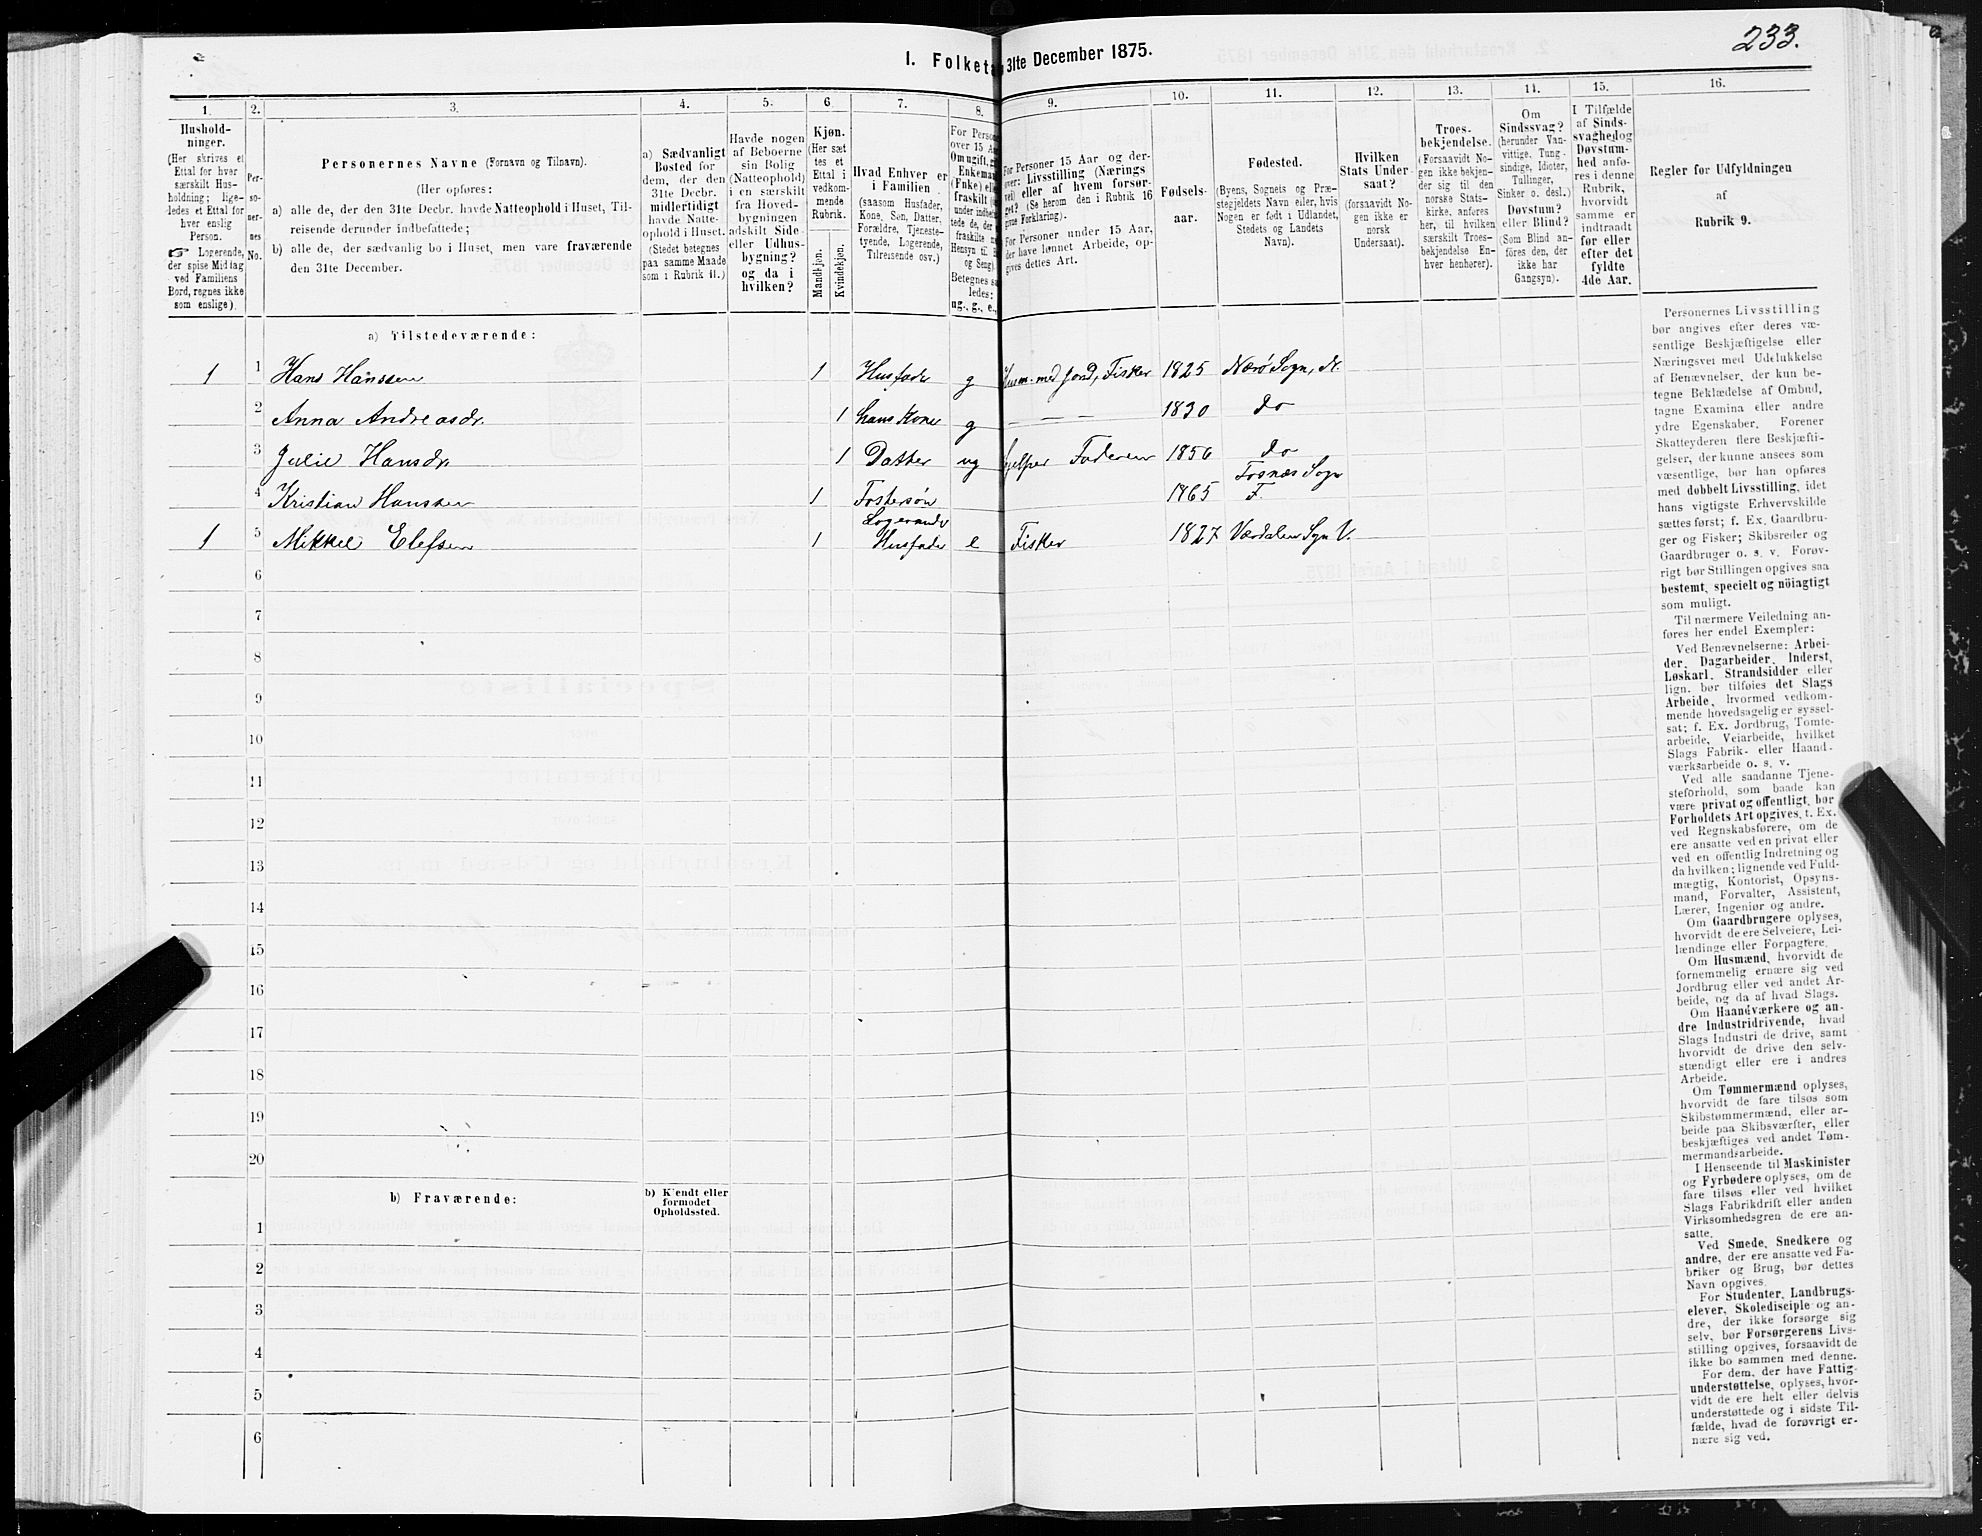 233.
I. Folketa 31te December 1875.
1. 2. 3. 4. 5. 6. 7. 8. 9. 10. 11. 12. 13. 14. 15. 16.
Hushold-
ninger.
(Her skrives et
Ettal for hver
særskilt Hus-
holdning; lige-
ledes et Ettal for
hver enslig
Person.
☞ Logerende,
der spise Middag
ved Familiens
Bord, regnes ikke
som enslige).
Per-
so-
ner-
nes
No.
Personernes Navne (Fornavn og Tilnavn).
(Her opføres:
a) alle de, der den 31te Decbr. havde Natteophold i Huset, Til-
reisende derunder indbefattede;
b) alle de, der sædvanlig bo i Huset, men vare fraværende
den 31te December.
a) Sædvanligt
Bosted for
dem, der den
31te Decbr.
midlertidigt
havde Natte-
ophold i Huset.
(Stedet betegnes
paa samme Maade
som i Rubrik 11.)
Havde nogen
af Beboerne
sin Bolig
(Natteophold)
i en særskilt
fra Hoved-
bygningen
adskilt Side-
eller Udhus-
bygning?
og da i
hvilken?
Kjøn.
(Her sæt
tes et
Ettal i
vedkom-
mende
Rubrik.
Mandkjøn.
Kvindekjøn.
Hvad Enhver er
i Familien
(saasom Husfader,
Kone, Søn, Datter,
Forældre, Tjeneste-
tyende, Logerende,
Tilreisende osv.)
For Person
over 15 Aa
Om ugift, g
Enkeman
(Enke) elle
fraskilt (e
under indbef
tede de, der e
fraskilte n
Hensyn til
og Seng).
Betegnes sa
ledes:
ug., g., e.,
For Personer 15 Aar og der-
over: Livsstilling (Nærings
vei) eller af hvem forsør-
get? (Se herom den i Rubrik 16
givne Forklaring).
For Personer under 15 Aar,
der have lønnet Arbeide, op-
gives dettes Art.
Fødsels-
aar.
Fødested.
(Byens, Sognets og Præ-
stegjeldets Navn eller, hvis
Nogen er født i Udlandet,
Stedets og Landets
Navn).
Hvilken
Stats Under-
saat?
(forsaavidt No-
gen ikke er
norsk
Undersaat).
Troes-
bekjendelse.
(Forsaavidt No-
gen ikke bekjen-
der sig til den
norske Stats-
kirke, anføres
her, til hvilken
særskilt Troes-
bekjendelse En-
hver henhører).
Om
Sindssvag?
(herunder Van-
vittige, Tung-
sindige, Idioter,
Tullinger,
Sinker o. desl.)
Døvstum?
eller Blind?
(Som Blind an-
føres den, der
ikke har
Gangsyn).
I Tilfælde
af Sinds-
svaghed og
Døvstum-
hed anfø-
res i denne
Rubrik,
hvorvidt
samme er
indtraadt
før eller
efter det
fyldte
4de Aar.
Regler for Udfyldningen
af
Rubrik 9.
a) Tilstedeværende:
1 1 Hans Hanssen 1 Husfader g Husm. med Jord, Fisker 1825 Nærø Sogn, N.
2 Anna Andreasdr. 1 hans Kone g — — 1830 do
3 Julie Hansdr. 1 Datter ug hjelper Faderen 1856 do
4 Kristian Hanssen 1 Fostersøn 1865 Fosnæs Sogn F.
1 5 Mikkel Elefsen 1 Logerende Husfader e Fisker 1827 Værdalen Sogn V.
6
7
8
9
10
11
12
13
14
15
16
17
18
19
20
b) Fraværende:
b) Kjendt eller
formodet
Opholdssted.
1
2
3
4
5
6
Personernes Livsstilling
bør angives efter deres væ-
sentlige Beskjæftigelse eller
Næringsvei med Udelukkelse
af Benævnelser, der kun be-
tegne Beklædelse af Ombud,
tagne Examina eller andre
ydre Egenskaber. Forener
Skatteyderen flere Beskjæfti-
gelser, der kunne ansees som
væsentlige, bør han opføres
med dobbelt Livsstilling, idet
hans vigtigste Erhvervskilde
sættes først; f. Ex. Gaardbru-
ger og Fisker; Skibsreder og
Gaardbruger o. s. v. Forøv-
rigt bør Stillingen opgives saa
bestemt, specielt og nöiagtigt
som muligt.
Til nærmere Veiledning an-
føres her endel Exempler:
Ved Benævnelserne: Arbei-
der, Dagarbeider, Inderst,
Løskarl, Strandsidder eller
lign. bør tilføies det Slags
Arbeide, hvormed vedkom-
mende hovedsagelig er syssel-
sat; f. Ex. Jordbrug, Tomte-
arbeide, Veiarbeide, hvilket
Slags Fabrik- eller Haand-
værksarbeide o. s. v.
Ved alle saadanne Tjene-
steforhold, som baade kan
være privat og offentligt, bør
Forholdets Art opgives, t. Ex.
ved Regnskabsførere, om de
ere ansatte ved en privat eller
ved en offentlig Indretning og
da hvilken; lignende ved Fuld-
mægtig, Kontorist, Opsyns-
mand, Forvalter, Assistent,
Lærer, Ingeniør og andre.
Om Gaardbrugere oplyses,
hvorvidt de ere Selveiere, Lei-
lændinge eller Forpagtere.
Om Husmænd, hvorvidt de
fornemmelig ernære sig ved
Jordbrug eller ved andet Ar-
beide, og da af hvad Slags.
Om Haandværkere og an-
dre Industridrivende, hvad
Slags Industri de drive, samt
hvorvidt de drive den selv-
stændigt eller ere i andres
Arbeide.
Om Tømmermænd oplyses,
hvorvidt de fare tilsøs som
Skibstømmermænd, eller ar-
beide paa Skibsværfter, eller
beskjæftiges ved andet Tøm-
mermandsarbeide.
I Henseende til Maskinister
og Fyrbødere oplyses, om de
fare tilsøs eller ved hvilket
Slags Fabrikdrift eller anden
Virksomhedsgren de ere an-
satte.
Ved Smede, Snedkere og
andre, der ere ansatte ved Fa-
briker og Brug, bør dettes
Navn opgives.
For Studenter, Landbrugs-
elever, Skoledisciple og an-
dre, der ikke forsørge sig
selv, bør Forsørgerens Livs-
stilling opgives, forsaavidt de
ikke bo sammen med denne.
For dem, der have Fattig-
understøttelse, oplyses, hvor-
vidt de ere helt eller delvis
understøttede og i sidste Til-
fælde, hvad de forøvrigt er-
nære sig ved.